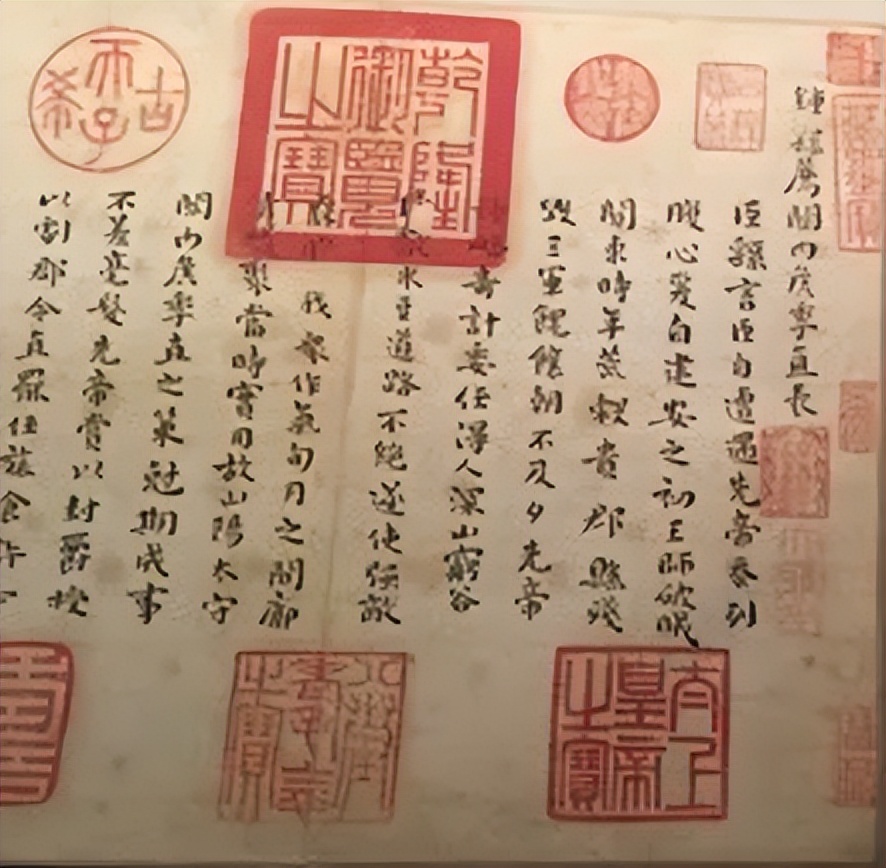 鍾繇薦關内侯季直表
臣繇言臣自遭遇先帝忝列
腹心爰自建安之初王師破賊
關東時年荒穀貴郡縣殘
毀三軍餽饟朝不及夕先帝
奇計委任得人深山窮谷
米豆道路不絶遂使強敵
我衆作氣旬月之間廓
聚當時實用故山陽太守
關内侯季直之策尅期成事
不差毫髮先帝賞以封爵授
以劇郡今直罷任旅食許
乾隆御覽之寶
古希天子
太上皇帝之寶
八徵耄念之寶